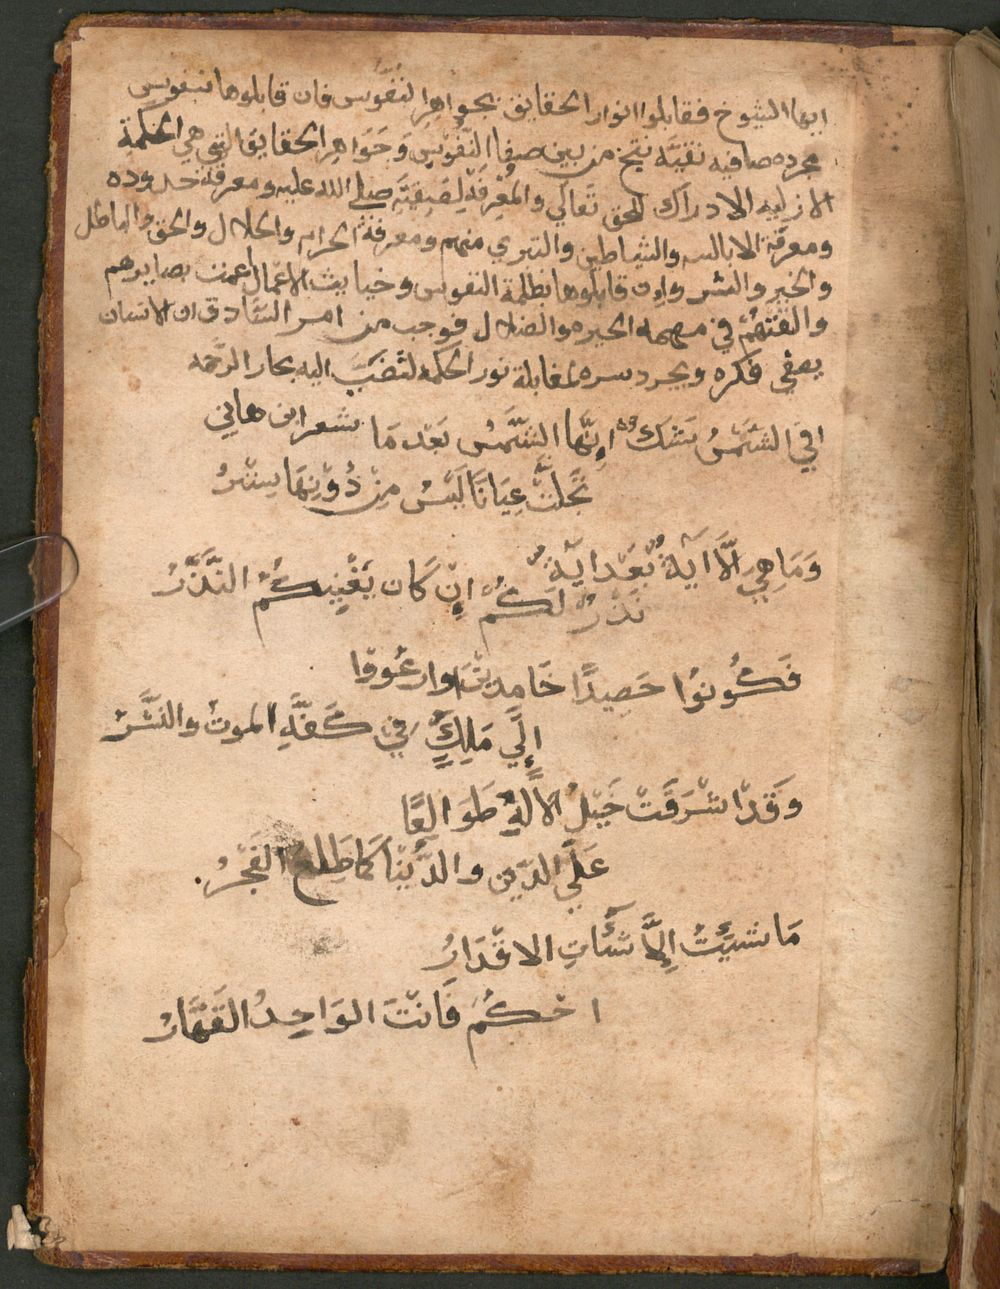 ايها الشيوخ فقابلوا انوار الحقايق بجواهر النفُوس فان قابلوها بنفوس
مجرده صافيه نقيّه ينتج من بين صفا النّفُوسِ وَجَوَاهِر الحقايق التي هي الحكمة
الازليه الادراك للحق تعَالي والمعْرِفَة صلى الله عليه ومعرفة حدوده
ومعرفة الابالسه والشياطين والتبري منهم ومعرفة الحرام والحلال والحق والباطل
والخير والشر وان قابلوها بظلمة النفوس وخبايث الاعمال اعمت بصايرهم
والقتهُمْ في مهمه الحيره والضلال فوجب من امر الصّادق ان الانسان
يصفي فكره ويجرد سره لمقابلة نور الحكمه لتَصُبَّ اليه بحار الرحمه
افي الشَمْسُ شك انّها الشّمسُ بَعْد مَا شعر ابن هاني
تجلّتْ عِيَانًا لَيْسَ مِنْ دُوْنِهَا سِتْرُ
وَمَا هِي الّا ايَةٌ بَعْد ايَةٍ
نَذرٌ لكُمْ اِنْ كَان يَغْنِيكُمْ النَّذْرُ
فَكُونُوا حَصِيدًا خَامِدينَ وارعُووا
إلَي مَلِكٍ في كَفّهِ الموتُ والنَّشْرُ
وَقَدْ اشْرَفَتْ خَيْلُ الالهِ طَوَالعًا
عَلَي الدّينِ والدُّنْيا كَمَا طَلعَ الفَجْرُ.
مَا شيئْتُ اِلَّا شآءَتِ الاقْدَارُ
احْكُمْ فَانْتَ الوَاحِدُ القَهَّارُ